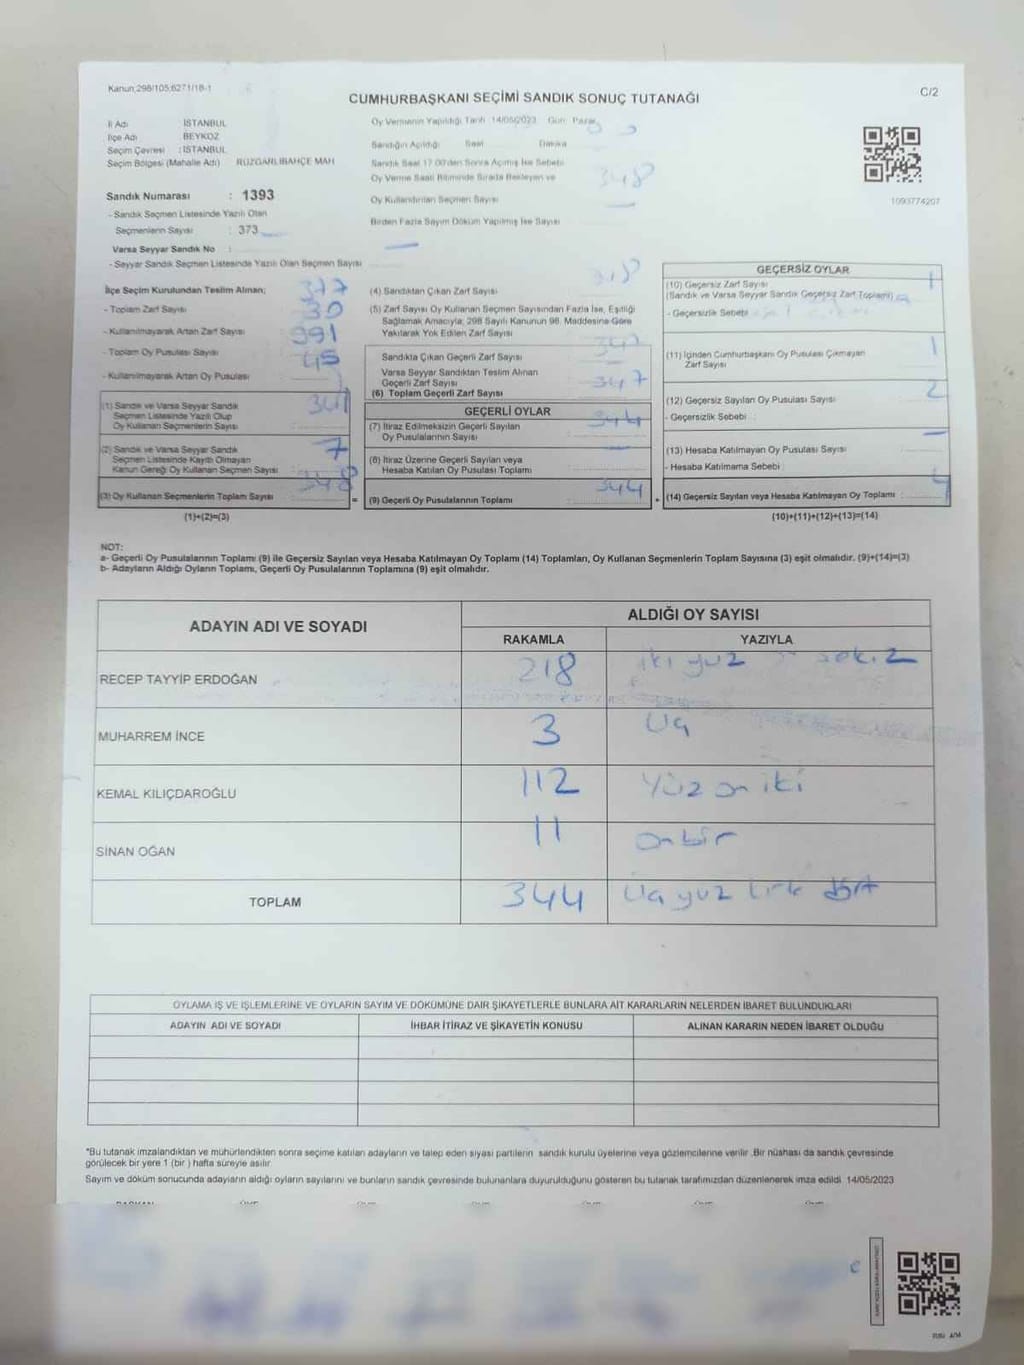 Kanun;298/105;6271/18-1
C/2
CUMHURBAŞKANI SEÇİMİ SANDIK SONUÇ TUTANAĞI
İl Adı İSTANBUL
İlçe Adı BEYKOZ
Seçim Çevresi : İSTANBUL
Seçim Bölgesi (Mahalle Adı) RÜZGARLIBAHÇE MAH
Sandık Numarası : 1393
- Sandık Seçmen Listesinde Yazılı Olan
Seçmenlerin Sayısı : 373
Varsa Seyyar Sandık No :
- Seyyar Sandık Seçmen Listesinde Yazılı Olan Seçmen Sayısı
Oy Vermenin Yapıldığı Tarih 14/05/2023 Gün Pazar
Sandığın Açıldığı Saat Dakika
Sandık Saat 17.00'den Sonra Açılmış İse Sebebi
Oy Verme Saati Bitiminde Sırada Bekleyen ve
Oy Kullandırılan Seçmen Sayısı 348
Birden Fazla Sayım Döküm Yapılmış İse Sayısı
1093774207
İlçe Seçim Kurulundan Teslim Alınan;
- Toplam Zarf Sayısı 377
- Kullanılmayarak Artan Zarf Sayısı 30
- Toplam Oy Pusulası Sayısı 391
- Kullanılmayarak Artan Oy Pusulası 45
(1) Sandık ve Varsa Seyyar Sandık
Seçmen Listesinde Yazılı Olup
Oy Kullanan Seçmenlerin Sayısı 341
(2) Sandık ve Varsa Seyyar Sandık
Seçmen Listesinde Kayıtlı Olmayan
Kanun Gereği Oy Kullanan Seçmen Sayısı 7
(3) Oy Kullanan Seçmenlerin Toplam Sayısı 348
(1)+(2)=(3)
(4) Sandıktan Çıkan Zarf Sayısı 348
(5) Zarf Sayısı Oy Kullanan Seçmen Sayısından Fazla İse, Eşitliği
Sağlamak Amacıyla, 298 Sayılı Kanunun 98. Maddesine Göre
Yakılarak Yok Edilen Zarf Sayısı
Sandıkta Çıkan Geçerli Zarf Sayısı 347
Varsa Seyyar Sandıktan Teslim Alınan
Geçerli Zarf Sayısı
(6) Toplam Geçerli Zarf Sayısı 347
GEÇERLİ OYLAR
(7) İtiraz Edilmeksizin Geçerli Sayılan
Oy Pusulalarının Sayısı 344
(8) İtiraz Üzerine Geçerli Sayılan veya
Hesaba Katılan Oy Pusulası Toplamı
= (9) Geçerli Oy Pusulalarının Toplamı 344 +
GEÇERSİZ OYLAR
(10) Geçersiz Zarf Sayısı 1
(Sandık ve Varsa Seyyar Sandık Geçersiz Zarf Toplamı)
- Geçersizlik Sebebi
(11) İçinden Cumhurbaşkanı Oy Pusulası Çıkmayan
Zarf Sayısı 1
(12) Geçersiz Sayılan Oy Pusulası Sayısı 2
- Geçersizlik Sebebi
(13) Hesaba Katılmayan Oy Pusulası Sayısı
- Hesaba Katılmama Sebebi
(14) Geçersiz Sayılan veya Hesaba Katılmayan Oy Toplamı : 4
(10)+(11)+(12)+(13)=(14)
NOT:
a- Geçerli Oy Pusulalarının Toplamı (9) ile Geçersiz Sayılan veya Hesaba Katılmayan Oy Toplamı (14) Toplamları, Oy Kullanan Seçmenlerin Toplam Sayısına (3) eşit olmalıdır. (9)+(14)=(3)
b- Adayların Aldığı Oyların Toplamı, Geçerli Oy Pusulalarının Toplamına (9) eşit olmalıdır.
ADAYIN ADI VE SOYADI
ALDIĞI OY SAYISI
RAKAMLA YAZIYLA
RECEP TAYYİP ERDOĞAN 218 iki yüz sekiz
MUHARREM İNCE 3 Üç
KEMAL KILIÇDAROĞLU 112 Yüz on iki
SİNAN OĞAN 11 onbir
TOPLAM 344 Üç yüz kırk dört
OYLAMA İŞ VE İŞLEMLERİNE VE OYLARIN SAYIM VE DÖKÜMÜNE DAİR ŞİKAYETLERLE BUNLARA AİT KARARLARIN NELERDEN İBARET BULUNDUKLARI
ADAYIN ADI VE SOYADI İHBAR İTİRAZ VE ŞİKAYETİN KONUSU ALINAN KARARIN NEDEN İBARET OLDUĞU
*Bu tutanak imzalandıktan ve mühürlendikten sonra seçime katılan adayların ve talep eden siyasi partilerin sandık kurulu üyelerine veya gözlemcilerine verilir .Bir nüshası da sandık çevresinde
görülecek bir yere 1 (bir ) hafta süreyle asılır
Sayım ve döküm sonucunda adayların aldığı oyların sayılarını ve bunların sandık çevresinde bulunanlara duyurulduğunu gösteren bu tutanak tarafımızdan düzenlenerek imza edildi 14/05/2023